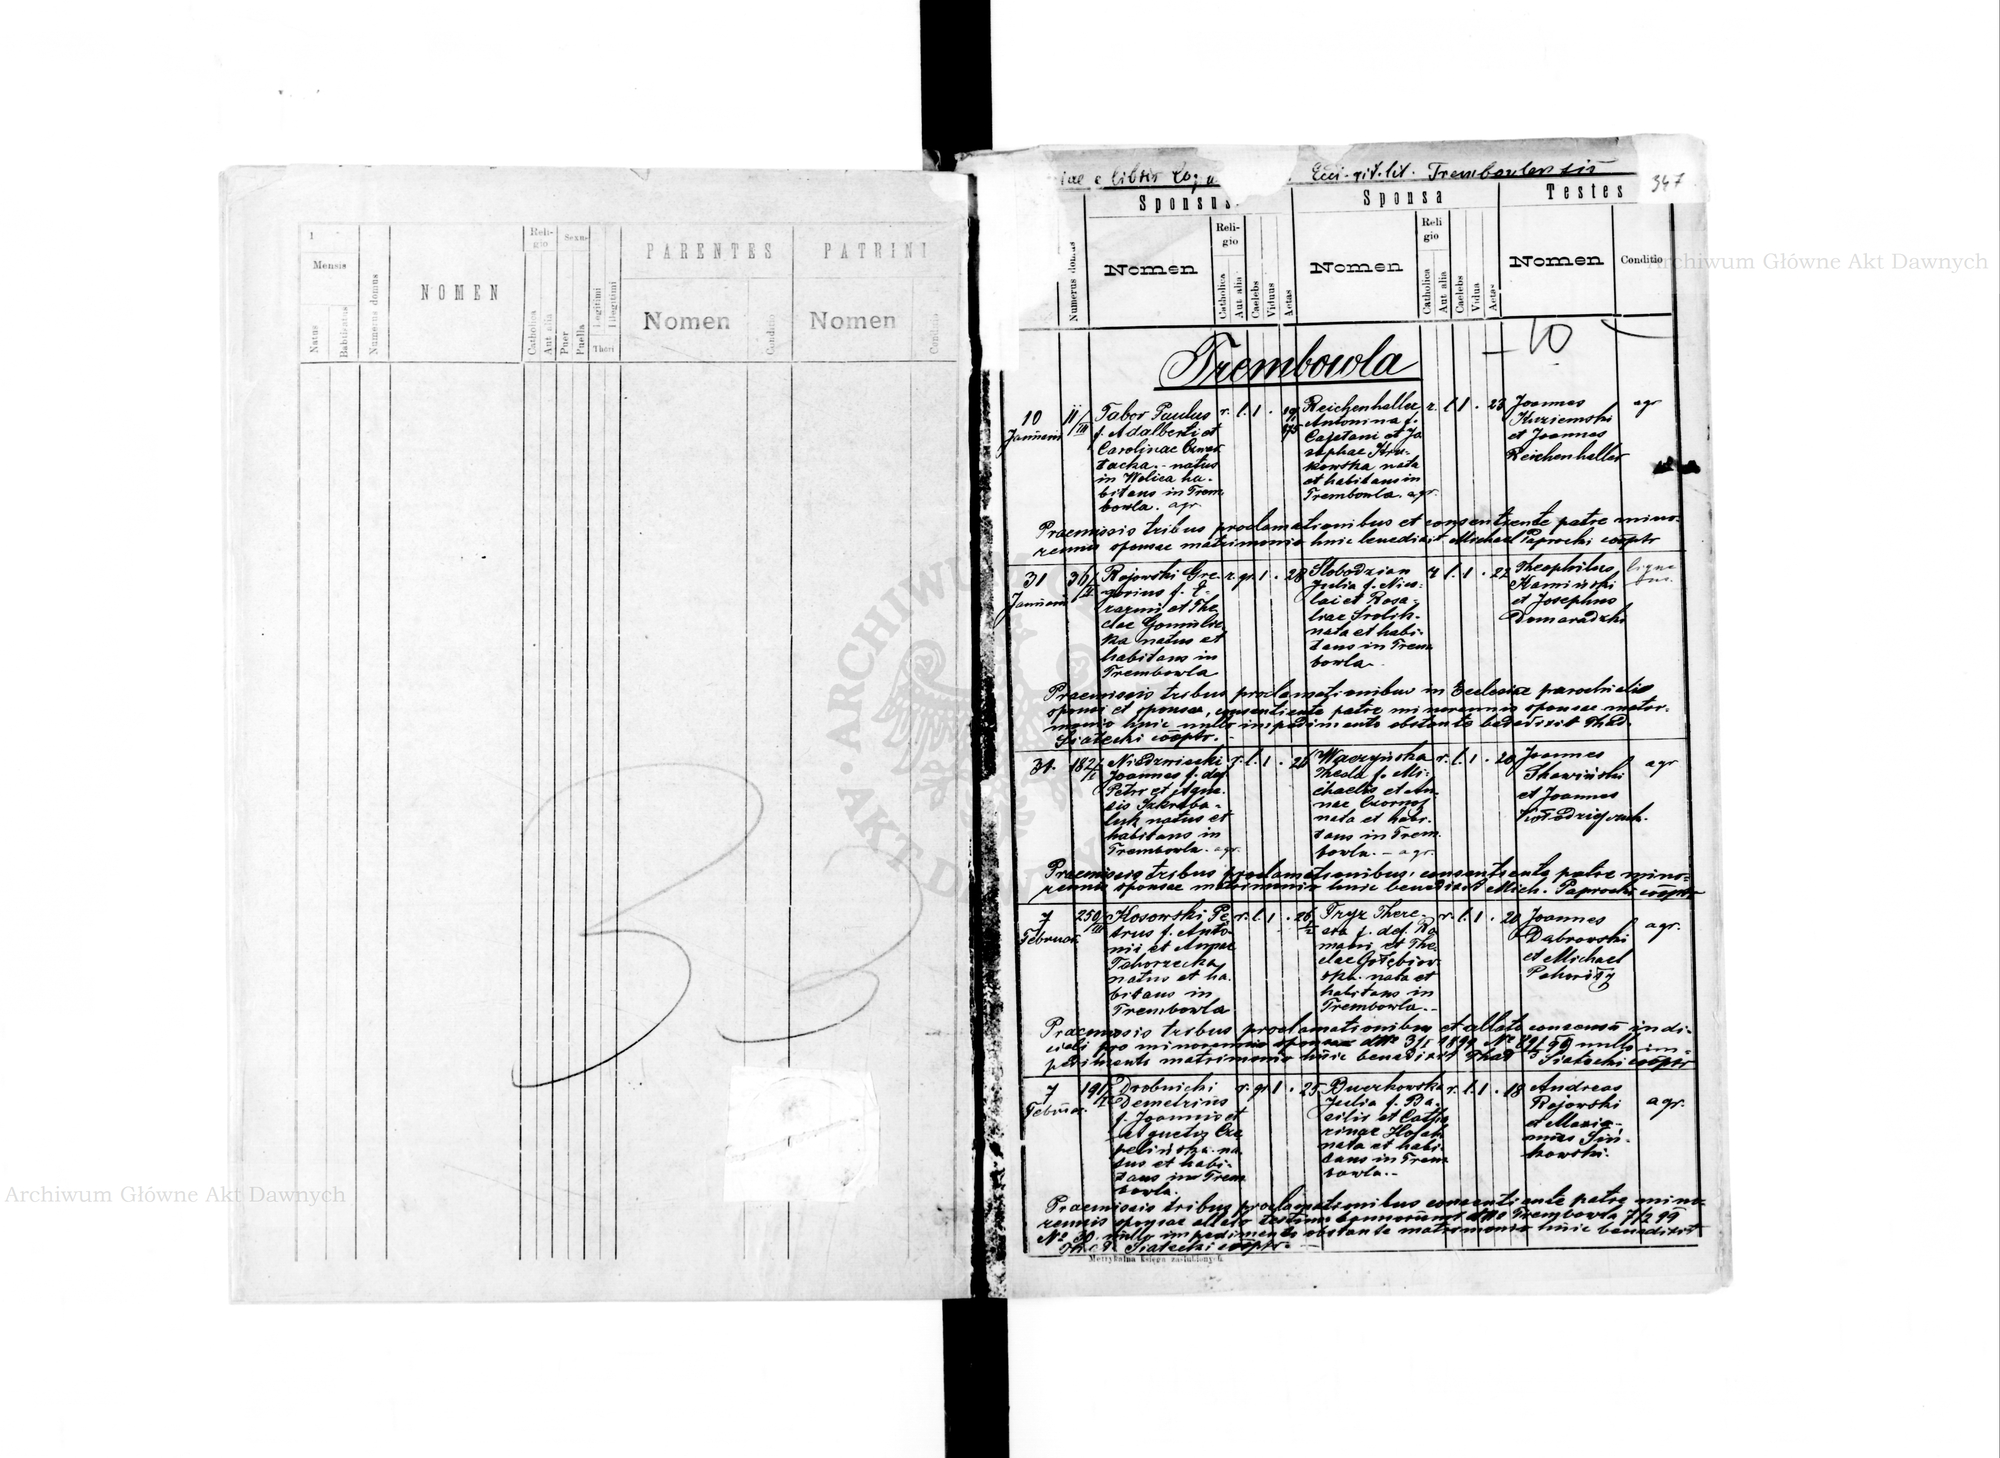 Archiwum Główne Akt Dawnych
Archiwum Główne Akt Dawnych
ARCHIWUM
AKT DAWNYCH
1
Mensis
Natus
Babtisatus
Numerus domus
NOMEN
Reli-
gio
Catholica
Aut alia
Sexus
Puer
Puella
Legitimi
Illegitimi
Thori
PARENTES
Nomen
Conditio
PATRINI
Nomen
Conditio
libris Eccl. rit. lit. Trembowlensis
347
Sponsus
Sponsa
Testes
Numerus domus
Nomen
Reli-
gio
Catholica
Aut alia
Caelebs
Viduus
Aetas
Nomen
Reli
gio
Catholica
Aut alia
Caelebs
Vidua
Aetas
Nomen
Conditio
10
Trembowla
10
Januarii
11/III
Tabor Paulus
f. Adalberti et
Carolinae
natus
in Wolica ha-
bitans in Trem
bowla. agr.
r. l. 1 .
Reichenheller
Antonina f.
Cajetani et Jo
sephae Kru-
kowska nata
et habitans in
Trembowla. agr.
r. l. 1 . 23
Joannes
Kuziemski
et Joannes
Reichenheller
agr
Praemissis tribus proclamationibus et consentiente patre mino-
rennis sponsae matrimonio huic benedixit Michael Paprocki cooptr
31
Januarii
36/II
Rajowski Gre-
gorius f. E-
razmi et The
clae
natus et
habitans in
Trembowla
r. gr. 1 . 28
Slobodzian
Julia f. Nico-
lai et Rosa-
liae
nata et habi-
tans in Trem
bowla
r l. 1 . 22
Theophilus
Kamiński
et Josephus
Domaradzki
Praemissis tribus proclamationibus in Ecclesiae parochialis
sponsi et sponsae, consentiente patre minorennis sponsae matri-
monio huic nullo impedimento obstante benedixit Thad.
Siatecki cooptr.
31. 182/I
Niedzwiecki
Joannes f. def.
Petri et Agne-
tis Szkraba-
luk natus et
habitans in
Trembowla. agr.
r. l. 1 . 26
Warzyńska
Thecla f. Mi-
chaelis et An-
nae Czornyj
nata et habi-
tans in Trem
bowla. - agr.
r. l. 1 . 20
Joannes
Skawiński
et Joannes
Kołodziejczuk.
agr
Praemissis tribus proclamationibus, consentiente patre mino-
rennis sponsae matrimonio huic benedixit Mich. Paprocki cooptr
7
Februar.
250/III
Kosowski Pe
trus f. Anto-
nii et Annae
Taborzecka
natus et ha-
bitans in
Trembowla
r. l. 1 . 26
Tryz There-
sia f. def. Ro
mani et The
clae Gołębiow
ska nata et
habitans in
Trembowla. -
r. l. 1 . 20
Joannes
Dąbrowski
et Michael
agr.
Praemissis tribus proclamationibus et allato consensu indi-
ciali pro minorennis sponsae dtto 3/1 1899 No nullo im-
pedimento matrimonio huic benedixit Thad. Siatecki cooptr
7
Februar.
191/I
Drobnicki
Demetrius
f. Joannis et
Cze
pelińska na
tus et habi-
tans in Trem
bowla.
r. gr. 1 . 25
Buczkowska
Julia f. Ba-
silii et Catha
rinae
nata et habi
tans in Trem
bowla. -
r. l. 1 . 18
Andreas
Rajowski
et Maria-
nus Siń-
kowski.
agr.
Praemissis tribus proclamationibus consentiente patre mino
rennis sponsae allato testimonio dtto Trembowla 7/2 99
No 30. nullo impedimento obstante matrimonio huic benedixit
Th. Siatecki cooptr.
Metrykalna księga zaślubionych.